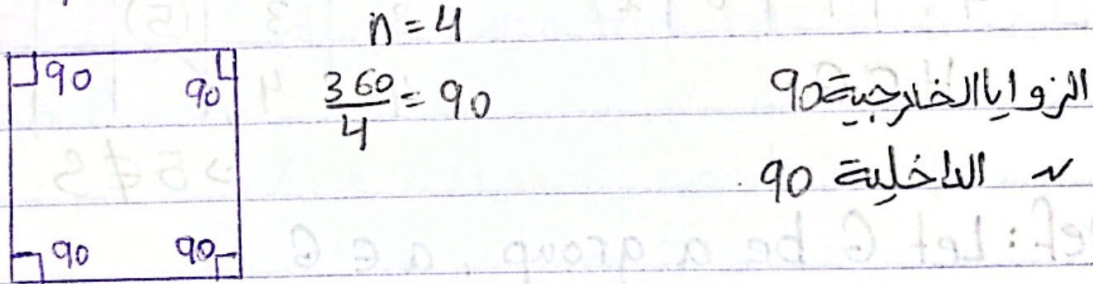 n = 4
90 90
360/4 = 90
الزوايا الخارجية 90
〃 الداخلية 90
90 90